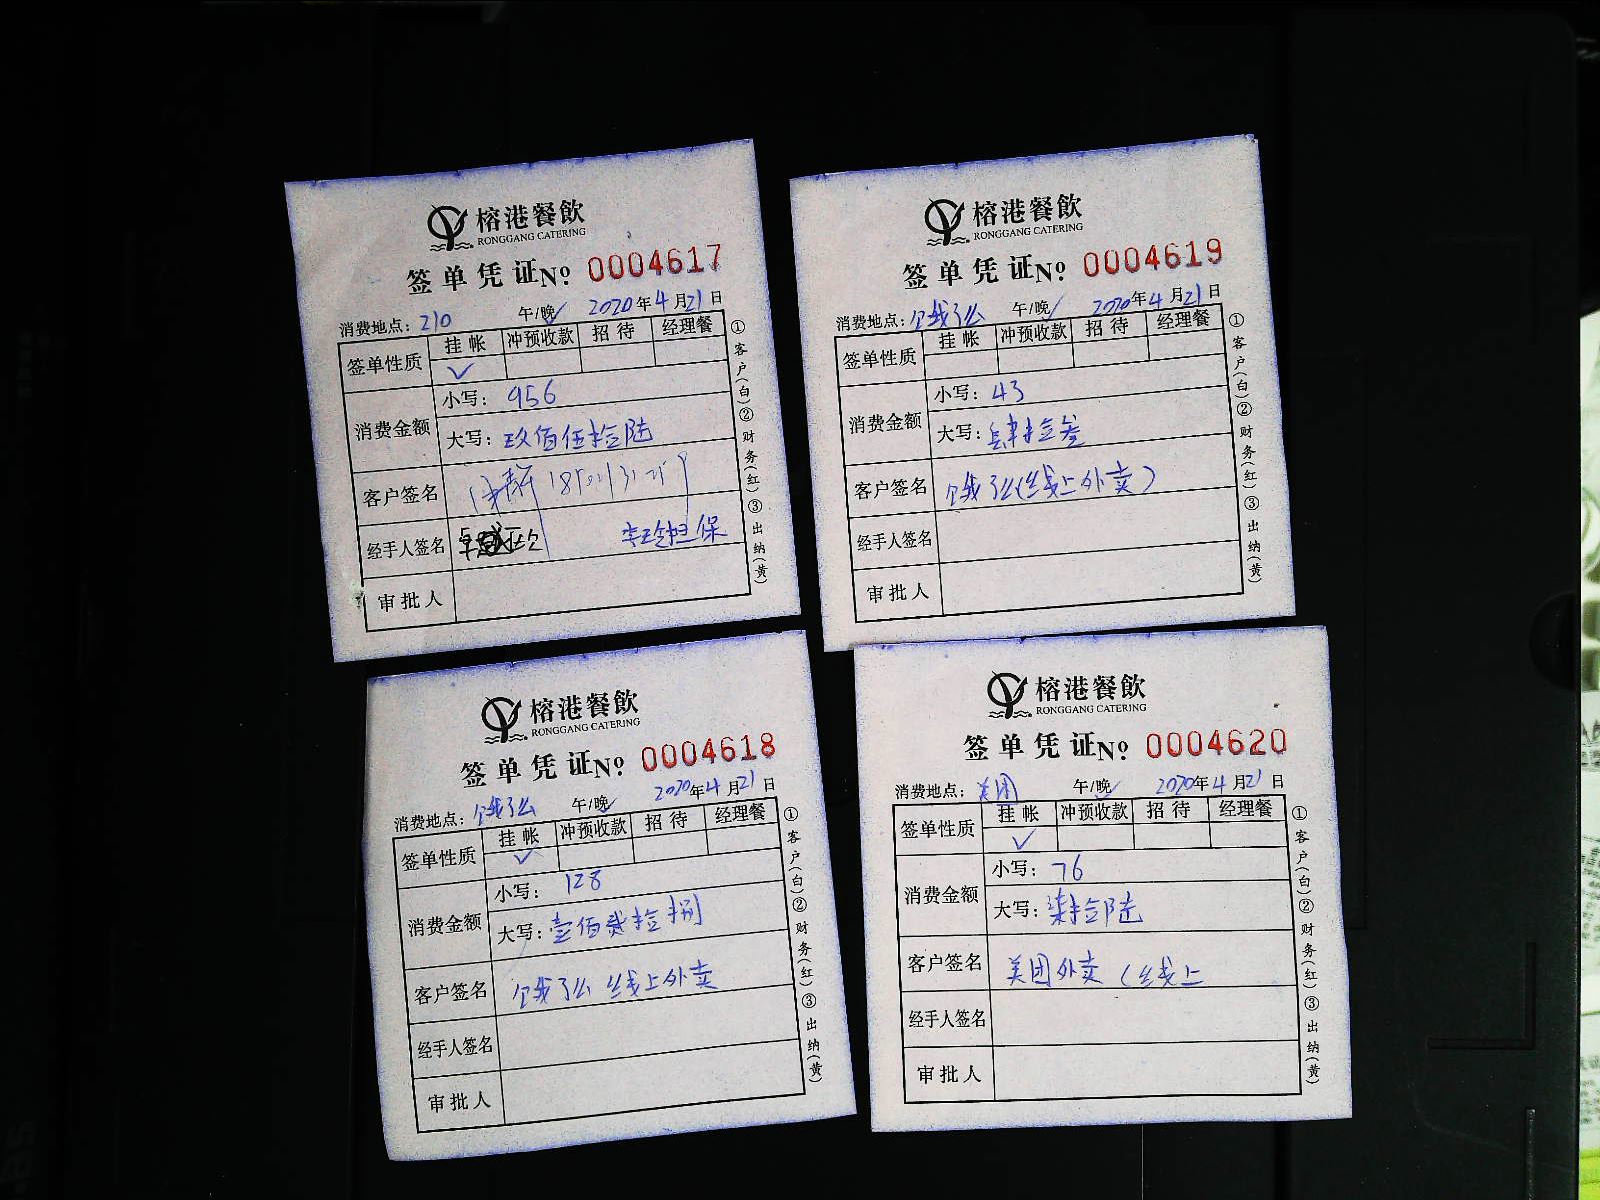 榕港餐飲
RONGGANG CATERING
签单凭证No 0004617
消费地点：210 午/晚✓ 2020年4月21日
签单性质 挂帐 冲预收款 招待 经理餐
✓
消费金额 小写：956
大写：玖佰伍拾陆
客户签名
经手人签名 担保
审批人
①客户(白)②财务(红)③出纳(黄)
榕港餐飲
RONGGANG CATERING
签单凭证No 0004619
消费地点：饿了么 午/晚✓ 2020年4月21日
签单性质 挂帐 冲预收款 招待 经理餐
消费金额 小写：43
大写：肆拾叁
客户签名 饿了么(线上外卖)
经手人签名
审批人
①客户(白)②财务(红)③出纳(黄)
榕港餐飲
RONGGANG CATERING
签单凭证No 0004618
消费地点：饿了么 午/晚✓ 2020年4月21日
签单性质 挂帐 冲预收款 招待 经理餐
✓
消费金额 小写：128
大写：壹佰贰拾捌
客户签名 饿了么 线上外卖
经手人签名
审批人
①客户(白)②财务(红)③出纳(黄)
榕港餐飲
RONGGANG CATERING
签单凭证No 0004620
消费地点：美团 午/晚✓ 2020年4月21日
签单性质 挂帐 冲预收款 招待 经理餐
✓
消费金额 小写：76
大写：柒拾陆
客户签名 美团外卖（线上
经手人签名
审批人
①客户(白)②财务(红)③出纳(黄)